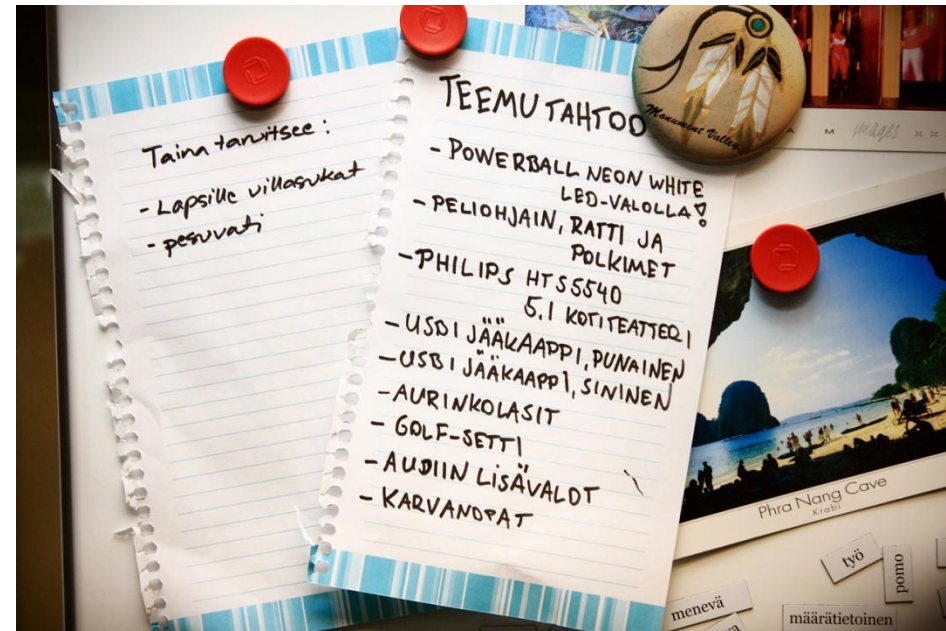 Taina tarvitsee:
- Lapsille villasukat
- pesuvati
TEEMU TAHTOO
- POWERBALL NEON WHITE
LED-VALOLLA!
- PELIOHJAIN, RATTI JA
POLKIMET
- PHILIPS HTS5540
5.1 KOTITEATTERI
- USBI JÄÄKAAPPI, PUNAINEN
- USBI JÄÄKAAPPI, SININEN
- AURINKOLASIT
- GOLF-SETTI
- AUDIIN LISÄVALOT
- KARVANOPAT
Monument Valley
images
Phra Nang Cave
Krabi
työ
pomo
menevä
määrätietoinen